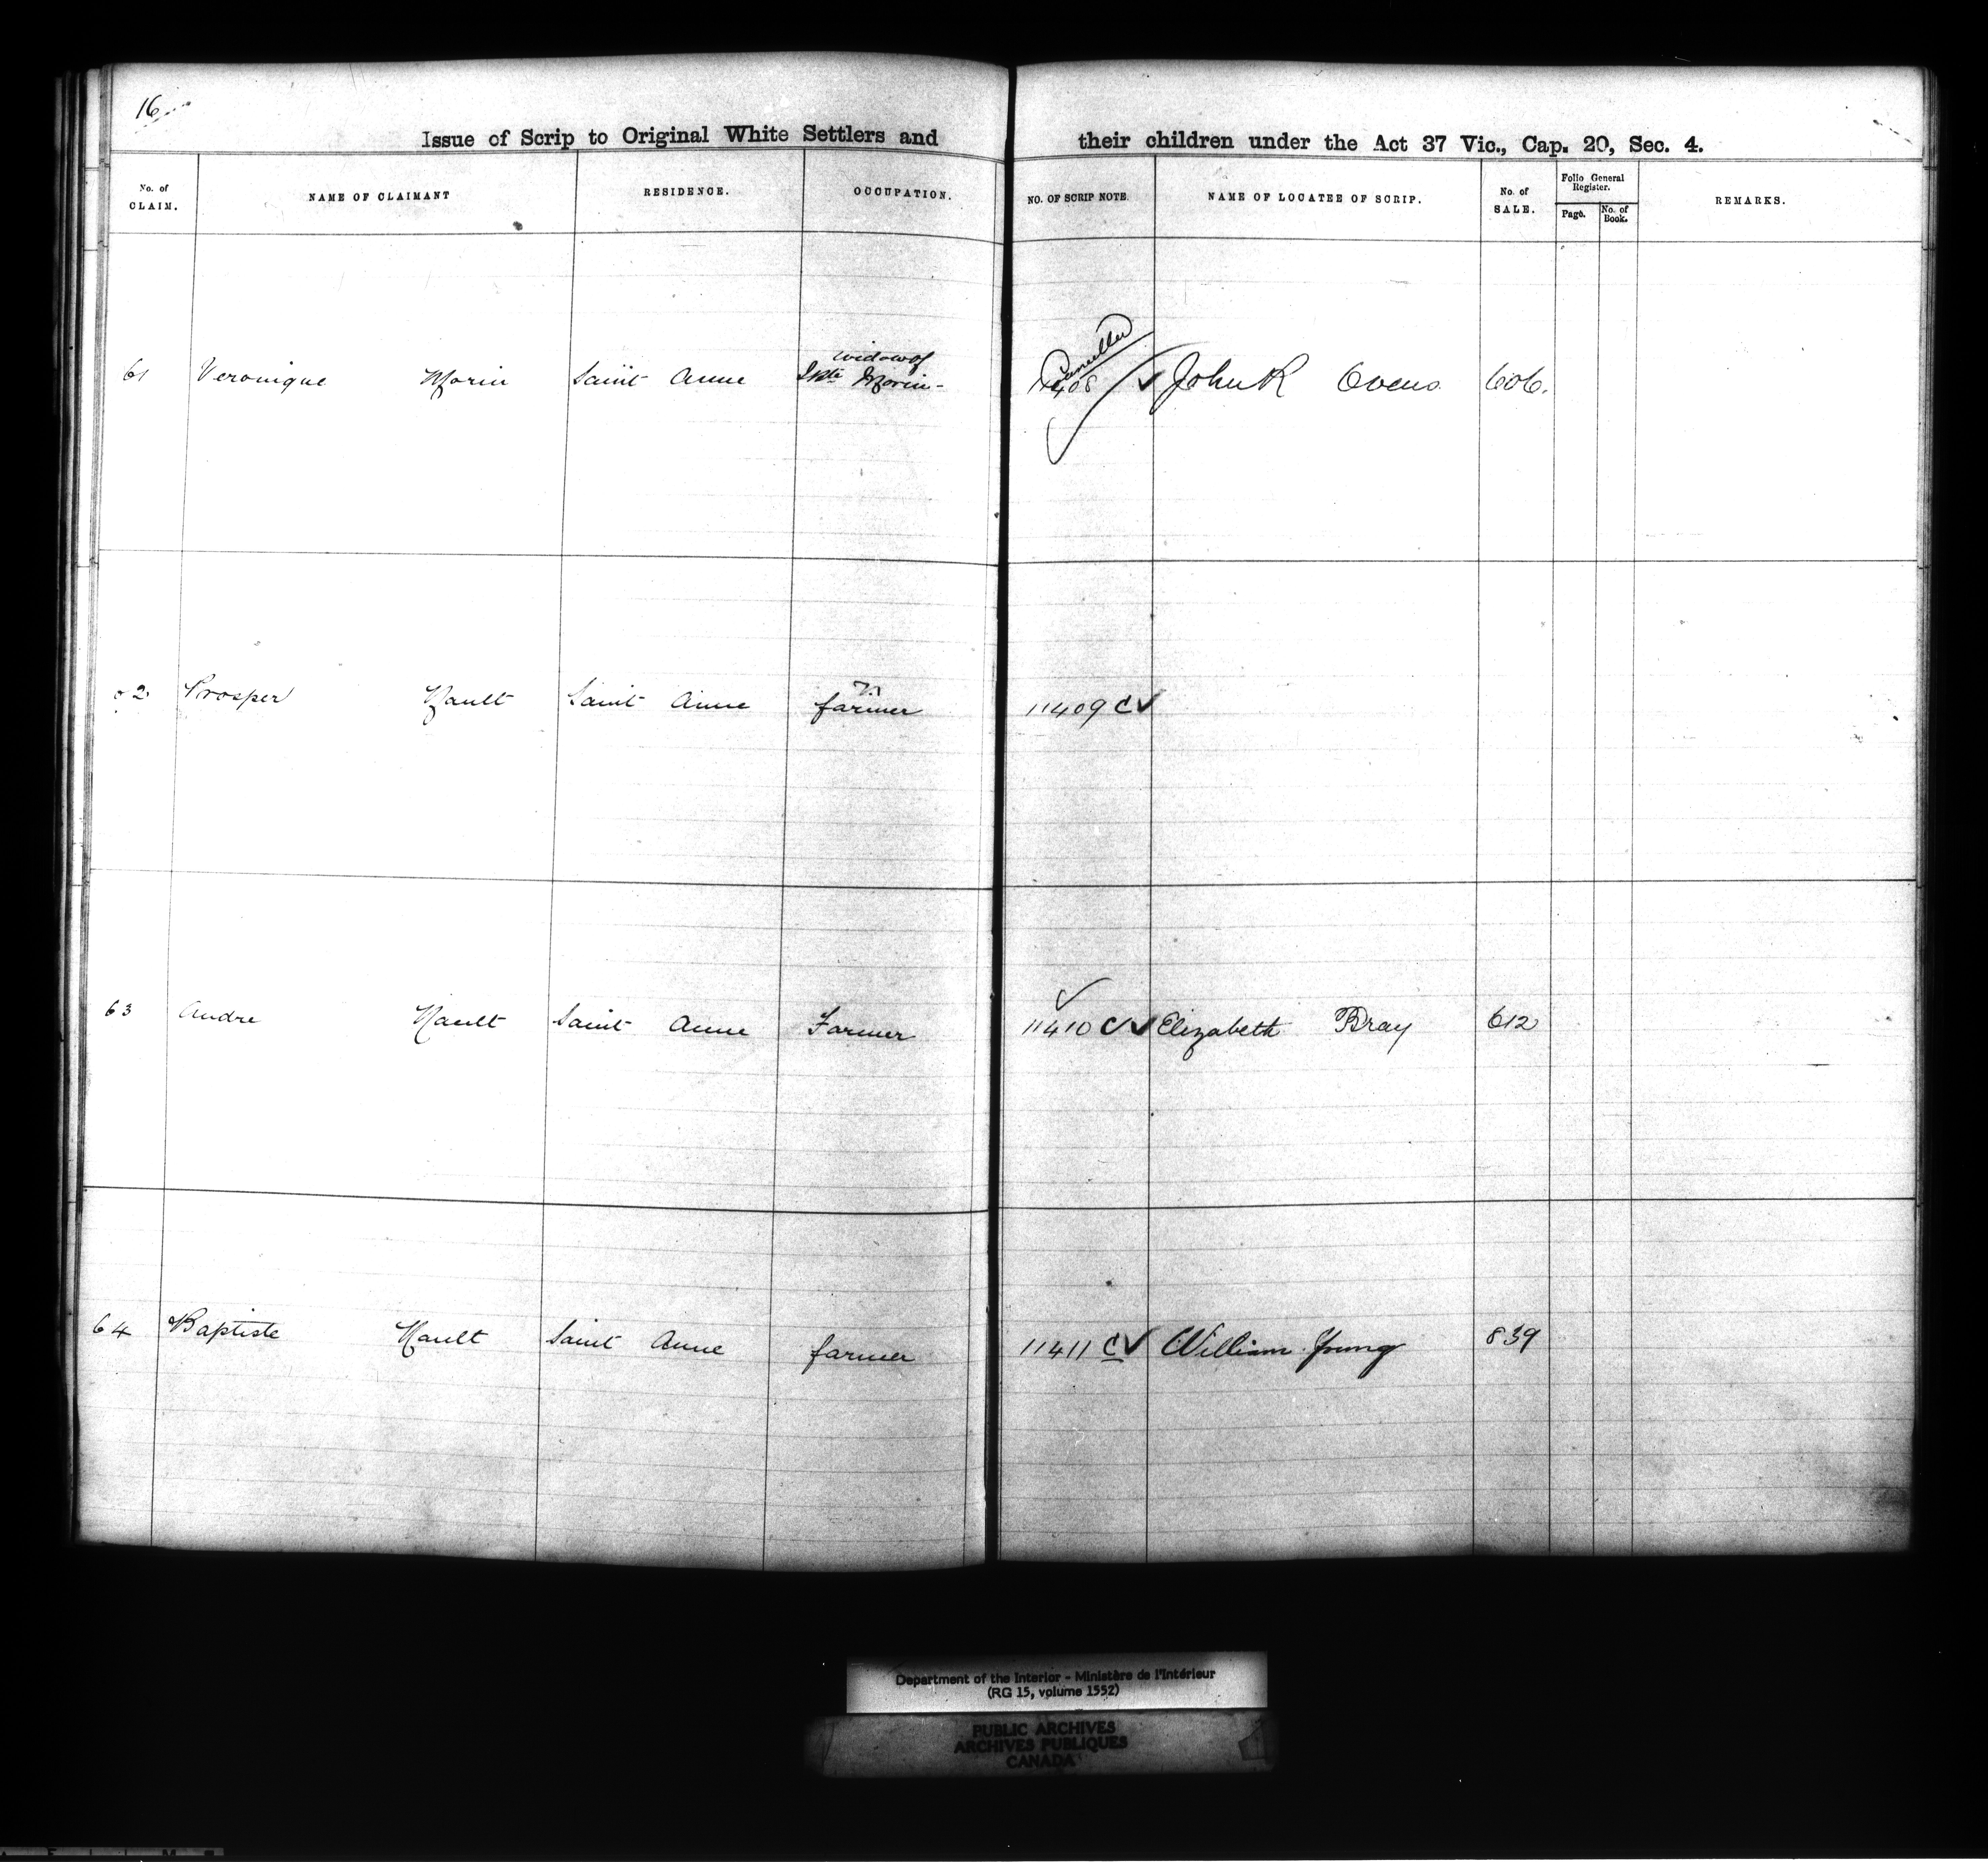 16
Issue of Scrip to Original White Settlers and their children under the Act 37 Vic., Cap. 20, Sec. 4.
No. of CLAIM. NAME OF CLAIMANT RESIDENCE. OCCUPATION. NO. OF SCRIP NOTE. NAME OF LOCATEE OF SCRIP. No. of SALE. Folio General Register. Page. No. of Book. REMARKS.
widow of
61 Veronique Morin Saint Anne Bte Morin - Cancelled 11408 John R Ovens 606.
62 Prosper Nault Saint Anne farmer 11409 C
63 Andre Nault Saint Anne Farmer 11410 C Elizabeth Bray 612
64 Baptiste Nault Saint Anne farmer 11411 C William Young 839
Department of the Interior - Ministère de l'Intérieur
(RG 15, volume 1552)
PUBLIC ARCHIVES
ARCHIVES PUBLIQUES
CANADA